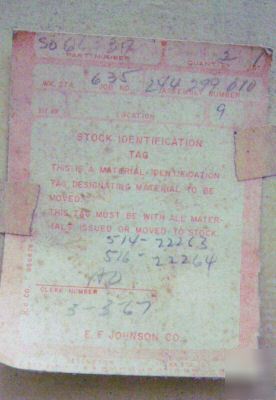 PART NUMBER QUANTITY
635 244 299 010
WK. STA. JOB NO. ASSEMBLY NUMBER
9
LOCATION
STOCK IDENTIFICATION
TAG
THIS IS A MATERIAL IDENTIFICATION
TAG DESIGNATING MATERIAL TO BE
MOVED.
THIS TAG MUST BE WITH ALL MATER-
IALS ISSUED OR MOVED TO STOCK.
514-22263
516-22264
CLERK NUMBER
3-3-67
E. F. JOHNSON CO.